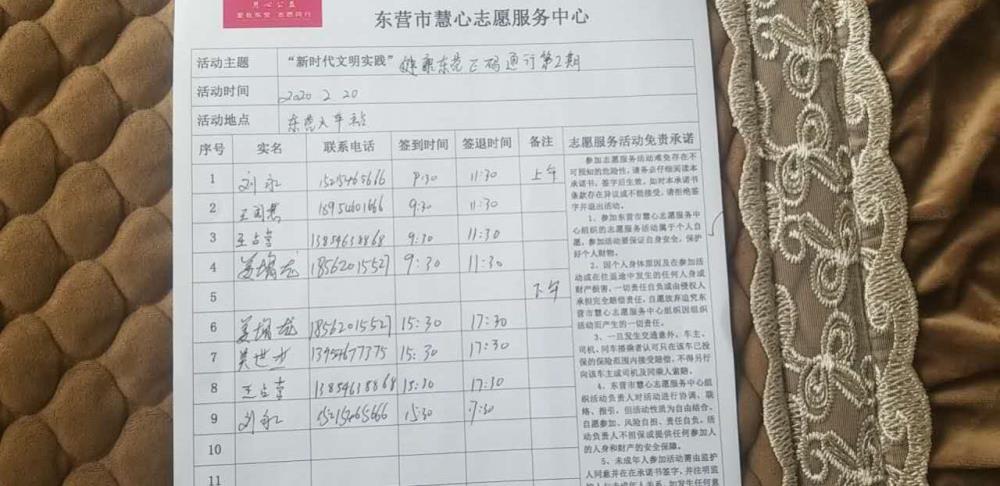 爱我东营 志愿同行
东营市慧心志愿服务中心
活动主题 “新时代文明实践” 健康东营 码通行第2期
活动时间 2020 2 20
活动地点 东营火车站
序号 实名 联系电话 签到时间 签退时间 备注 志愿服务活动免责承诺
1 刘永 9:30 11:30 上午
2 9:30 11:30
3 王占喜 13854638868 9:30 11:30
4 姜增龙 18562015527 9:30 11:30
5 下午
6 姜增龙 18562015527 15:30 17:30
7 吴世杰 13954677375 15:30 17:30
8 王占喜 13854638868 15:30 17:30
9 刘永 15:30 17:30
10
11
参加志愿服务活动难免存在不
可预知的危险性，请务必仔细阅读本
承诺书，签字后生效，如对本承诺书
条款存在异议或不能接受，请拒绝签
字并退出活动。
1、参加东营市慧心志愿服务中
心组织的志愿服务活动属于个人自
愿，参加活动要保证自身安全，保护
好个人财物。
2、因个人身体原因及在参加活
动或在往返途中发生的任何人身或
财产损害，一切责任自负或由侵权人
承担完全赔偿责任，自愿放弃追究东
营市慧心志愿服务中心组织因组织
活动而产生的一切责任。
3、一旦发生交通意外，车主、
司机、同车搭乘者认可只在该车已投
保的保险范围内接受赔偿，不得另行
向该车主或司机及同乘人索赔。
4、东营市慧心志愿服务中心组
织活动负责人对活动进行协调、联
络、指引，但活动性质为自由结合、
自愿参加、风险自担、责任自负，活
动负责人不担保或提供任何参加人
的人身和财产的安全保障。
5、未成年人参加活动需由监护
人同意并在在承诺书签字，并注明监